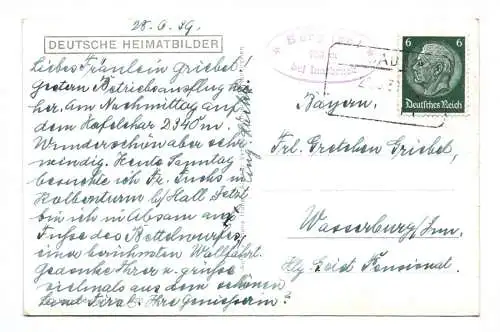 28. 6. 39.
DEUTSCHE HEIMATBILDER
Liebes Fräulein Griebel!
Gestern Betriebsausflug hie-
her. Am Nachmittag auf
dem Hafelekar 2340 m.
Wunderschön aber sehr
windig. Heute Sonntag
besuchte ich Fr. Fuchs in
Volderturm b/Hall. Jetzt
bin ich in Absam am
Fuße des Bettelwurfes,
einen berühmten Wallfahrt.
Gedenke Ihrer u. grüße
vielmals aus dem schönen
Land Tirol. Ihre
bei Innsbruck
6 6
Deutsches Reich
Bayern.
Frl. Gretchen Griebel,
Wasserburg/Inn.
Hlg. Geist Pensional.